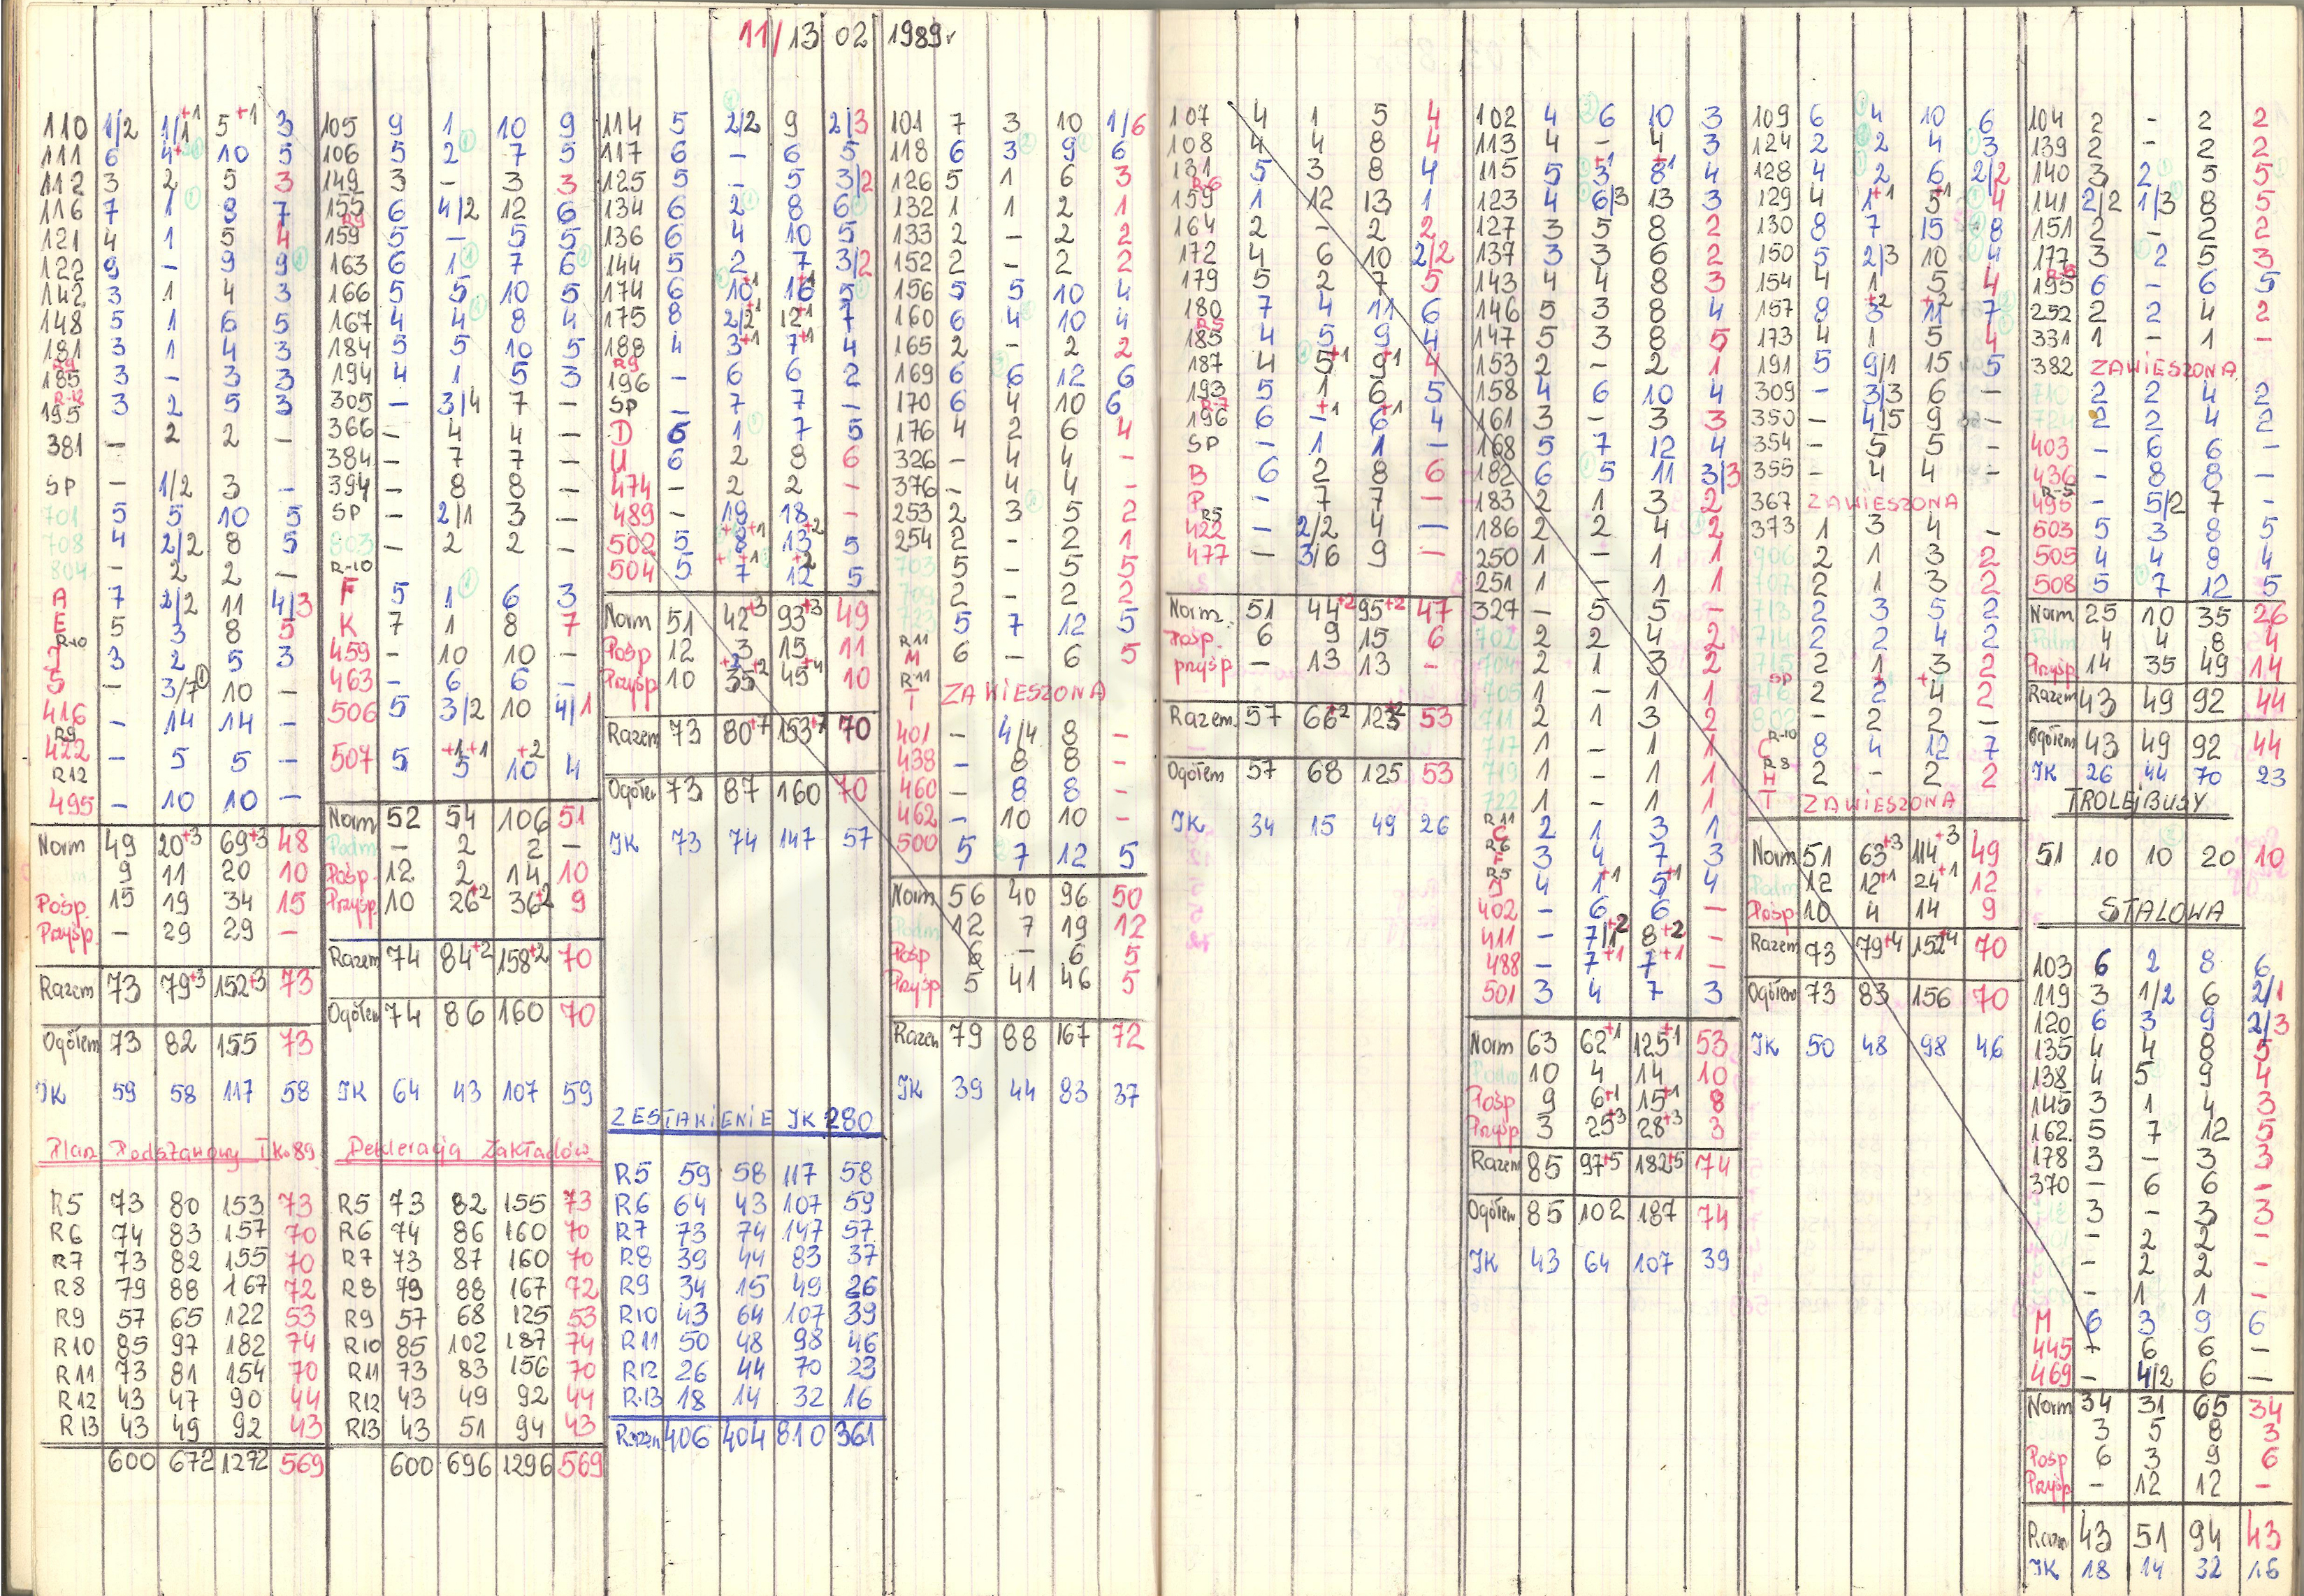 11/13 02 1989r
110 1/2 1/1+1 5+1 3
111 6 4+ 10 5
112 3 2 5 3
116 7 1 8 7
121 4 1 5 4
122 9 - 9 9
142 3 1 4 3
148 5 1 6 5
181 3 1 4 3
R9
185 3 - 3 3
R-12
195 3 2 5 3
381 - 2 2 -
SP - 1/2 3 -
701 5 5 10 5
708 4 2/2 8 5
804 - 2 2 -
A 7 2/2 11 4/3
E 5 3 8 5
R-10
J 3 2 5 3
S - 3/7 10 -
416 - 14 14 -
R9
422 - 5 5 -
R12
495 - 10 10 -
Norm 49 20+3 69+3 48
9 11 20 10
Pośp. 15 19 34 15
Przysp. - 29 29 -
Razem 73 79+3 152+3 73
Ogółem 73 82 155 73
JK 59 58 117 58
Plan Podstawowy I k. 89
R5 73 80 153 73
R6 74 83 157 70
R7 73 82 155 70
R8 79 88 167 72
R9 57 65 122 53
R10 85 97 182 74
R11 73 81 154 70
R12 43 47 90 44
R13 43 49 92 43
600 672 1272 569
105 9 1 10 9
106 5 2 7 5
149 3 - 3 3
155 6 4/2 12 6
R9
159 5 - 5 5
163 6 1 7 6
166 5 5 10 5
167 4 4 8 4
184 5 5 10 5
194 4 1 5 3
305 - 3/4 7 -
366 - 4 4 -
384 - 7 7 -
394 - 8 8 -
SP - 2/1 3 -
803 - 2 2 -
R-10
F 5 1 6 3
K 7 1 8 7
459 - 10 10 -
463 - 6 6 -
506 5 3/2 10 4/1
507 5 5+1+1 10+2 4
Norm 52 54 106 51
Podm - 2 2 -
Pośp. 12 2 14 10
Przysp. 10 26+2 36+2 9
Razem 74 84+2 158+2 70
Ogółem 74 86 160 70
JK 64 43 107 59
Deklaracja Zakładów.
R5 73 82 155 73
R6 74 86 160 70
R7 73 87 160 70
R8 79 88 167 72
R9 57 68 125 53
R10 85 102 187 74
R11 73 83 156 70
R12 43 49 92 44
R13 43 51 94 43
600 696 1296 569
114 5 2/2 9 2/3
117 6 - 6 5
125 5 - 5 3/2
134 6 2 8 6
136 6 4 10 5
144 5 2 7 3/2
174 6 10+1 16+1 5
175 8 2/2+1 12+1 7
188 4 3+1 7+1 4
R9
196 - 6 6 2
SP - 7 7 -
D 6 1 7 5
U 6 2 8 6
474 - 2 2 -
489 - 18 18 -
502 5 8+1+1 13+2 5
504 5 7+1+1 12+2 5
Norm 51 42+3 93+3 49
Pośp 12 3 15 11
Przysp 10 35+2+2 45+4 10
Razem 73 80+7 153+7 70
Ogółem 73 87 160 70
JK 73 74 147 57
ZESTAWIENIE JK 280
R5 59 58 117 58
R6 64 43 107 59
R7 73 74 147 57
R8 39 44 83 37
R9 34 15 49 26
R10 43 64 107 39
R11 50 48 98 46
R12 26 44 70 23
R13 18 14 32 16
Razem 406 404 810 361
101 7 3 10 1/6
118 6 3 9 6
126 5 1 6 3
132 1 1 2 1
133 2 - 2 2
152 2 - 2 2
156 5 5 10 4
160 6 4 10 4
165 2 - 2 2
169 6 6 12 6
170 6 4 10 6
176 4 2 6 4
326 - 4 4 -
376 - 4 4 -
253 2 3 5 2
254 2 - 2 1
703 5 - 5 5
709 2 - 2 2
723 5 7 12 5
R11
M 6 - 6 5
R11
T ZAWIESZONA
401 - 4/4 8 -
438 - 8 8 -
460 - 8 8 -
462 - 10 10 -
500 5 7 12 5
Norm 56 40 96 50
Podm 12 7 19 12
Pośp 6 - 6 5
Przysp 5 41 46 5
Razem 79 88 167 72
JK 39 44 83 37
107 4 1 5 4
108 4 4 8 4
131 5 3 8 4
R-6
159 1 12 13 1
164 2 - 2 2
172 4 6 10 2/2
179 5 2 7 5
180 7 4 11 6
R-5
185 4 5 9 4
187 4 5+1 9+1 4
193 5 1 6 5
R-7
196 6 -+1 6+1 4
SP - 1 1 -
B 6 2 8 6
P - 7 7 -
R5
422 - 2/2 4 -
477 - 3/6 9 -
Norm. 51 44+2 95+2 47
Pośp. 6 9 15 6
przysp - 13 13 -
Razem. 57 66+2 123+2 53
Ogółem 57 68 125 53
JK 34 15 49 26
102 4 6 10 3
113 4 - 4 3
115 5 3+1 8+1 4
123 4 6/3 13 3
127 3 5 8 2
137 3 3 6 2
143 4 4 8 3
146 5 3 8 4
147 5 3 8 5
153 2 - 2 1
158 4 6 10 4
161 3 - 3 3
168 5 7 12 4
182 6 5 11 3/3
183 2 1 3 2
186 2 2 4 2
250 1 - 1 1
251 1 - 1 1
327 - 5 5 -
702 2 2 4 2
704 2 1 3 2
705 1 - 1 1
711 2 1 3 2
717 1 - 1 1
719 1 - 1 1
722 1 - 1 1
R11
C 2 1 3 1
R6
F 3 4 7 3
R5
J 4 1+1 5+1 4
402 - 6 6 -
411 - 7/1+2 8+2 -
488 - 7+1 7+1 -
501 3 4 7 3
Norm 63 62+1 125+1 53
Podm 10 4 14 10
Pośp 9 6+1 15+1 8
Przysp 3 25+3 28+3 3
Razem 85 97+5 182+5 74
Ogółem 85 102 187 74
JK 43 64 107 39
109 6 4 10 6
124 2 2 4 3
128 4 2 6 2/2
129 4 1+1 5+1 4
130 8 7 15 8
150 5 2/3 10 4
154 4 1 5 4
157 8 3+2 11+2 7
173 4 1 5 4
191 5 9/1 15 5
309 - 3/3 6 -
350 - 4/5 9 -
354 - 5 5 -
355 - 4 4 -
367 ZAWIESZONA
373 1 3 4 -
906 2 1 3 2
707 2 1 3 2
713 2 3 5 2
714 2 2 4 2
715 2 1 3 2
SP
716 2 2+ 4+ 2
802 - 2 2 -
R-10
C 8 4 12 7
R8
H 2 - 2 2
T ZAWIESZONA
Norm 51 63+3 114+3 49
Podm 12 12+1 24+1 12
Pośp 10 4 14 9
Razem 73 79+4 152+4 70
Ogółem 73 83 156 70
JK 50 48 98 46
104 2 - 2 2
139 2 - 2 2
140 3 2 5 5
141 2/2 1/3 8 5
151 2 - 2 2
177 3 2 5 3
R-5
195 6 - 6 5
252 2 2 4 2
331 1 - 1 -
382 ZAWIESZONA
710 2 2 4 2
724 2 2 4 2
403 - 6 6 -
436 - 8 8 -
R-5
495 - 5/2 7 -
503 5 3 8 5
505 4 4 8 4
508 5 7 12 5
Norm 25 10 35 26
Podm 4 4 8 4
Przysp 14 35 49 14
Razem 43 49 92 44
Ogółem 43 49 92 44
JK 26 44 70 23
TROLEJBUSY
51 10 10 20 10
STALOWA
103 6 2 8 6
119 3 1/2 6 2/1
120 6 3 9 2/3
135 4 4 8 5
138 4 5 9 4
145 3 1 4 3
162 5 7 12 5
178 3 - 3 3
370 - 6 6 -
3 - 3 3
- 2 2 -
- 2 2 -
- 1 1 -
M 6 3 9 6
445 + 6 6 -
469 - 4/2 6 -
Norm 34 31 65 34
3 5 8 3
Pośp 6 3 9 6
Przysp - 12 12 -
Razem 43 51 94 43
JK 18 14 32 16